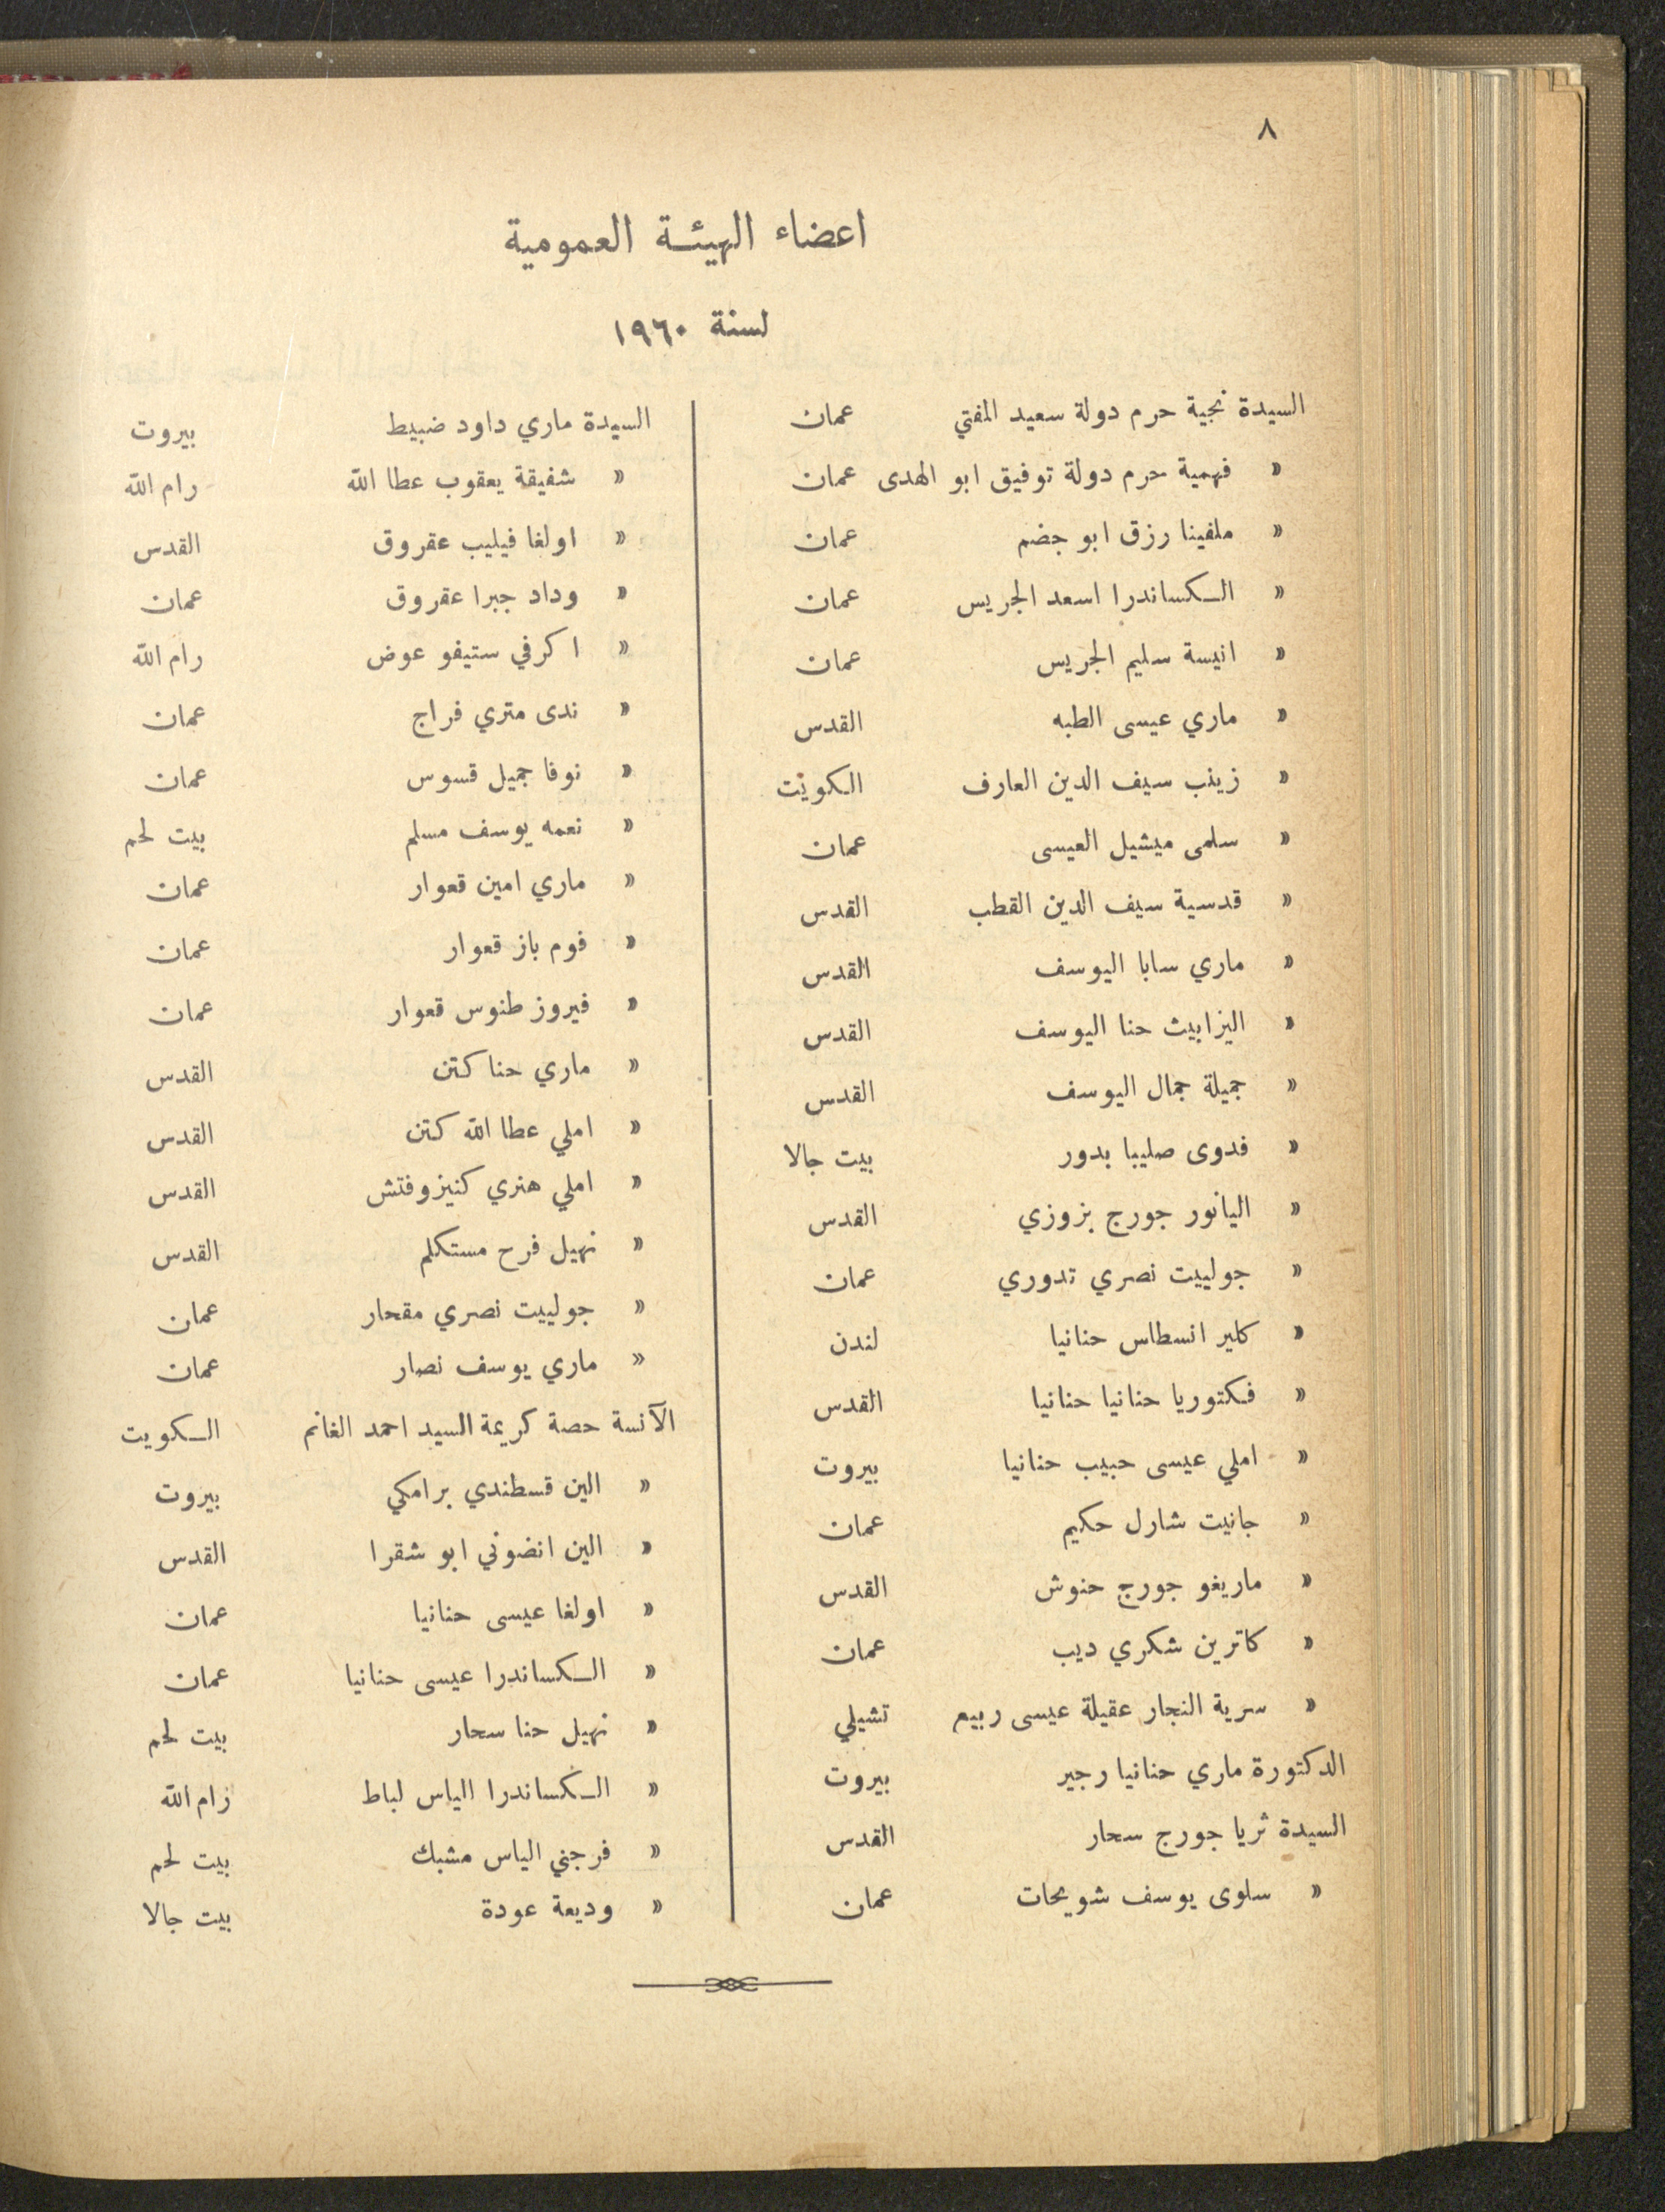 ٨
اعضاء الهيئة العمومية
لسنة ١٩٦٠
السيدة نجية حرم دولة سعيد المفتي عمان
» فهمية حرم دولة توفيق ابو الهدى عمان
» ملفينا رزق ابو جضم عمان
» الكساندرا اسعد الجريس عمان
» انيسة سليم الجريس عمان
» ماري عيسى الطبه القدس
» زينب سيف الدين العارف الكويت
» سلمى ميشيل العيسى عمان
» قدسية سيف الدين القطب القدس
» ماري سابا اليوسف القدس
» اليزابيث حنا اليوسف القدس
» جميلة جمال اليوسف القدس
» فدوى صليبا بدور بيت جالا
» اليانور جورج بزوزي القدس
» جولييت نصري تدوري عمان
» كلير انسطاس حنانيا لندن
» فكتوريا حنانيا حنانيا القدس
» املي عيسى حبيب حنانيا بيروت
» جانيت شارل حكيم عمان
» ماريغو جورج حنوش القدس
» كاترين شكري ديب عمان
» سرية النجار عقيلة عيسى ربيع تشيلي
الدكتورة ماري حنانيا رجير بيروت
السيدة ثريا جورج سحار القدس
» سلوى يوسف شويحات عمان
السيدة ماري داود ضبيط بيروت
» شفيقة يعقوب عطا الله رام الله
» اولغا فيليب عقروق القدس
» وداد جبرا عقروق عمان
» اكرفي ستيفو عوض رام الله
» ندى متري فراج عمان
» نوفا جميل قسوس عمان
» نعمه يوسف مسلم بيت لحم
» ماري امين قعوار عمان
» فوم باز قعوار عمان
» فيروز طنوس قعوار عمان
» ماري حنا كتن القدس
» املي عطا الله كتن القدس
» املي هنري كنيزوفتش القدس
» نهيل فرح مستكلم القدس
» جولييت نصري مقحار عمان
» ماري يوسف نصار عمان
الآنسة حصة كريمة السيد احمد الغانم الكويت
» الين قسطندي برامكي بيروت
» الين انضوني ابو شقرا القدس
» اولغا عيسى حنانيا عمان
» الكساندرا عيسى حنانيا عمان
» نهيل حنا سحار بيت لحم
» الكساندرا الياس لباط رام الله
» فرجني الياس مشبك بيت لحم
» وديعة عودة بيت جالا